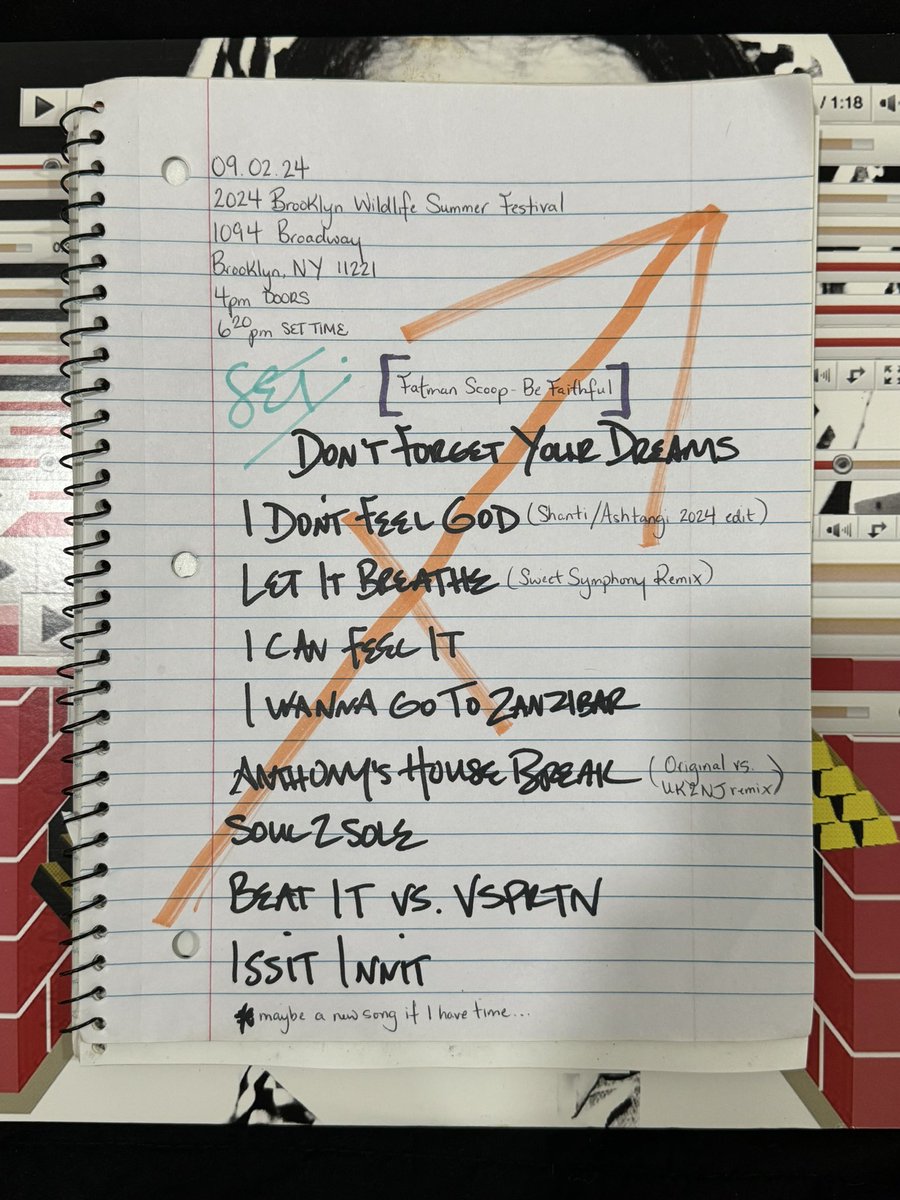 / 1:18
09.02.24
2024 Brooklyn Wildlife Summer Festival
1094 Broadway
Brooklyn, NY 11221
4pm DOORS
6 20 pm SET TIME
SET:
[Fatman Scoop - Be Faithful]
DON'T FORGET YOUR DREAMS
I DON'T FEEL GOD (Shanti/Ashtangi 2024 edit)
LET IT BREATHE (Sweet Symphony Remix)
I CAN FEEL IT
I WANNA GO TO ZANZIBAR
ANTHONY'S HOUSE BREAK (Original vs.
UK2NJ remix)
SOUL2SOLE
BEAT IT VS. VSPRTN
ISSIT INNIT
* maybe a new song if I have time...